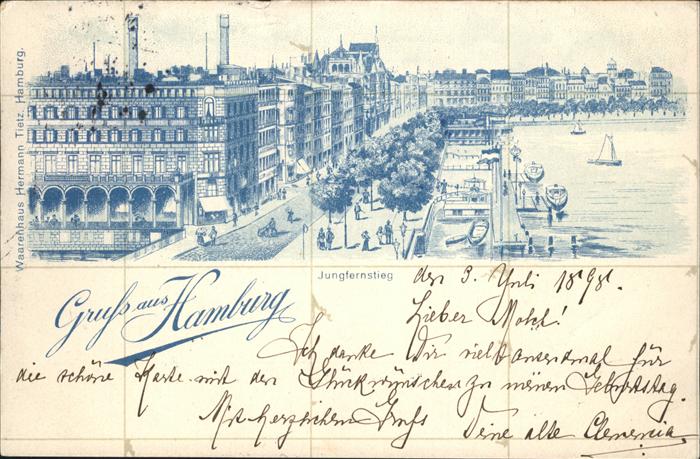 Waarenhaus Hermann Tietz, Hamburg.
Jungfernstieg
Gruß aus Hamburg
den 3. Juli 1898.
Lieber
Ich danke Dir vieltausendmal für
die schöne Karte mit den Glückwünschen zu meinem Geburtstag.
Mit herzlichem Gruß Deine alte Clemencia